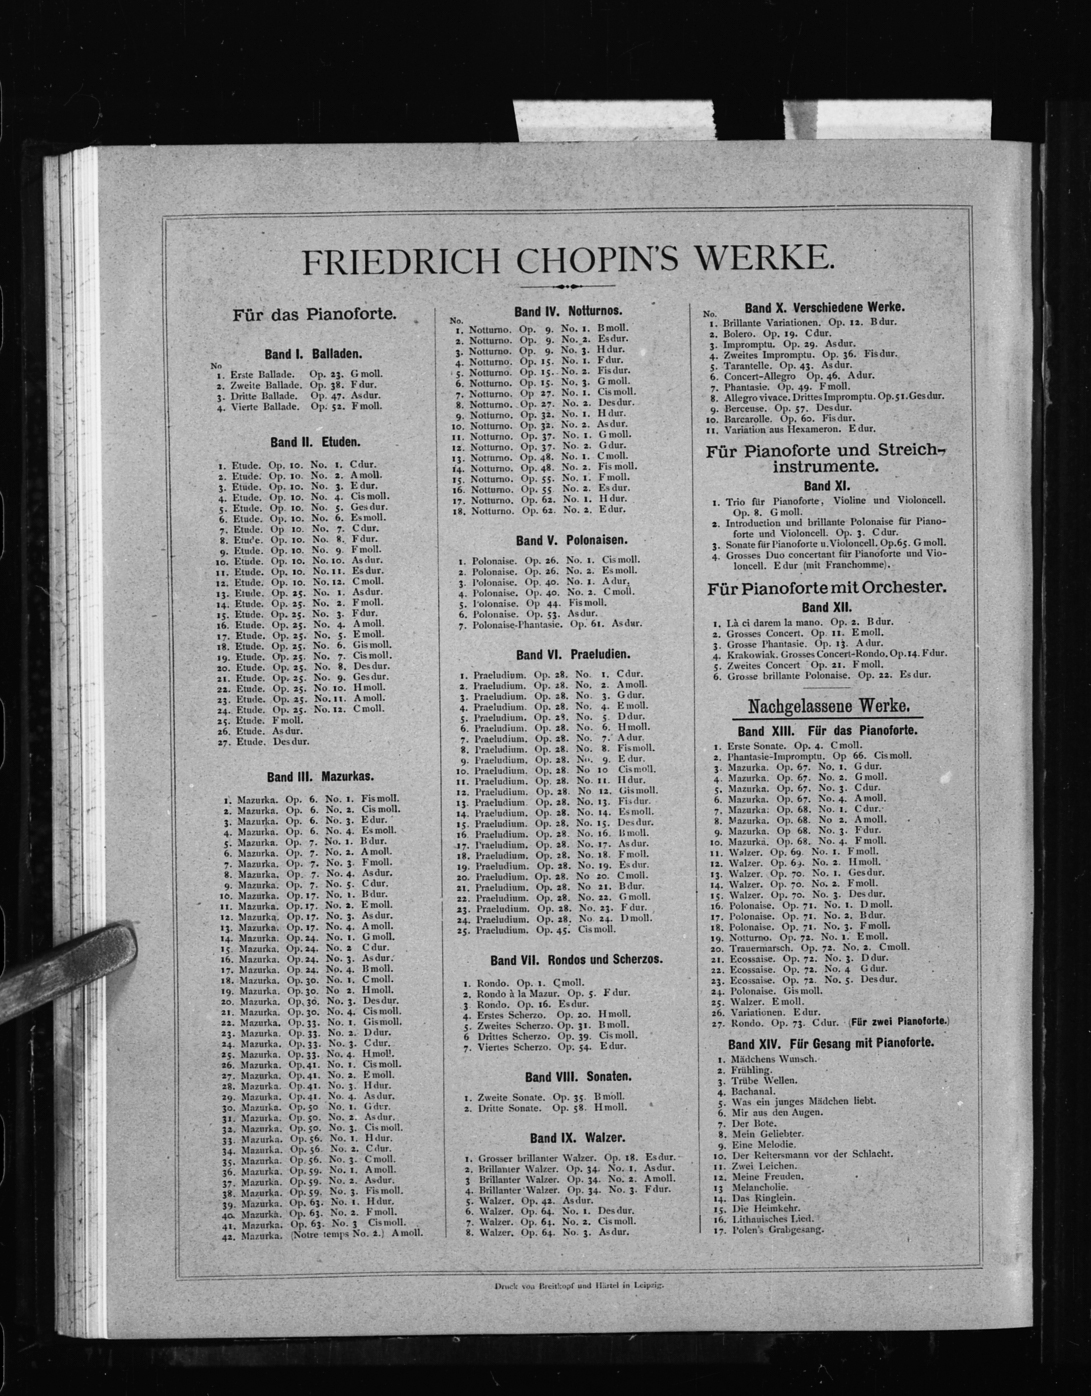 FRIEDRICH CHOPIN'S WERKE.
Für das Pianoforte.
Band I. Balladen.
No
1. Erste Ballade. Op. 23. G moll.
2. Zweite Ballade. Op. 38. F dur.
3. Dritte Ballade. Op. 47. As dur.
4. Vierte Ballade. Op. 52. F moll.
Band II. Etuden.
1. Etude. Op. 10. No. 1. C dur.
2. Etude. Op. 10. No. 2. A moll.
3. Etude. Op. 10. No. 3. E dur.
4. Etude. Op. 10. No. 4. Cis moll.
5. Etude. Op. 10. No. 5. Ges dur.
6. Etude. Op. 10. No. 6. Es moll.
7. Etude. Op 10. No. 7. C dur.
8. Etude. Op. 10. No. 8. F dur.
9. Etude. Op. 10. No. 9. F moll.
10. Etude. Op. 10. No. 10. As dur.
11. Etude. Op. 10. No. 11. Es dur.
12. Etude. Op. 10. No. 12. C moll.
13. Etude. Op. 25. No. 1. As dur.
14. Etude. Op. 25. No. 2. F moll.
15. Etude. Op. 25. No. 3. F dur.
16. Etude. Op. 25. No. 4. A moll.
17. Etude. Op. 25. No. 5. E moll.
18. Etude. Op. 25. No. 6. Gis moll.
19. Etude. Op. 25. No. 7. Cis moll.
20. Etude. Op. 25. No. 8. Des dur.
21. Etude. Op. 25. No. 9. Ges dur.
22. Etude. Op. 25. No. 10. H moll.
23. Etude. Op. 25. No. 11. A moll.
24. Etude. Op. 25. No. 12. C moll.
25. Etude. F moll.
26. Etude. As dur.
27. Etude. Des dur.
Band III. Mazurkas.
1. Mazurka. Op. 6. No. 1. Fis moll.
2. Mazurka. Op. 6. No. 2. Cis moll.
3. Mazurka. Op. 6. No. 3. E dur.
4. Mazurka. Op. 6. No. 4. Es moll.
5. Mazurka. Op. 7. No. 1. B dur.
6. Mazurka. Op. 7. No. 2. A moll.
7. Mazurka. Op. 7. No. 3. F moll.
8. Mazurka. Op. 7. No. 4. As dur.
9. Mazurka. Op. 7. No. 5. C dur.
10. Mazurka. Op. 17. No. 1. B dur.
11. Mazurka. Op. 17. No. 2. E moll.
12. Mazurka. Op. 17. No. 3. As dur.
13. Mazurka. Op. 17. No. 4. A moll.
14. Mazurka. Op. 24. No. 1. G moll.
15. Mazurka. Op. 24. No. 2 C dur.
16. Mazurka. Op. 24. No. 3. As dur.
17. Mazurka. Op. 24. No. 4. B moll.
18. Mazurka. Op. 30. No. 1. C moll.
19. Mazurka. Op. 30. No 2. H moll.
20. Mazurka. Op. 30. No. 3. Des dur.
21. Mazurka. Op. 30. No. 4. Cis moll.
22. Mazurka. Op. 33. No. 1. Gis moll.
23. Mazurka. Op. 33. No. 2. D dur.
24. Mazurka. Op. 33. No. 3. C dur.
25. Mazurka. Op. 33. No. 4. H moll.
26. Mazurka. Op. 41. No. 1. Cis moll.
27. Mazurka. Op. 41. No. 2. E moll.
28. Mazurka. Op. 41. No. 3. H dur.
29. Mazurka. Op. 41. No. 4. As dur.
30. Mazurka. Op. 50 No. 1. G dur.
31. Mazurka. Op. 50. No. 2. As dur.
32. Mazurka. Op. 50. No. 3. Cis moll.
33. Mazurka. Op. 56. No. 1. H dur.
34. Mazurka. Op. 56. No. 2. C dur.
35. Mazurka. Op. 56. No. 3. C moll.
36. Mazurka. Op. 59. No. 1. A moll.
37. Mazurka. Op. 59. No. 2. As dur.
38. Mazurka. Op. 59. No. 3. Fis moll.
39. Mazurka. Op. 63. No. 1. H dur.
40. Mazurka. Op. 63. No. 2. F moll.
41. Mazurka. Op. 63. No. 3 Cis moll.
42. Mazurka. (Notre temps No. 2.) A moll.
Band IV. Notturnos.
No.
1. Notturno. Op. 9. No. 1. B moll.
2. Notturno. Op. 9. No. 2. Es dur.
3. Notturno. Op. 9. No. 3. H dur.
4. Notturno. Op. 15. No. 1. F dur.
5. Notturno. Op. 15. No. 2. Fis dur.
6. Notturno. Op. 15. No. 3. G moll.
7. Notturno. Op 27. No. 1. Cis moll.
8. Notturno. Op. 27. No. 2. Des dur.
9. Notturno. Op. 32. No. 1. H dur.
10. Notturno. Op. 32. No. 2. As dur.
11. Notturno. Op. 37. No. 1. G moll.
12. Notturno. Op. 37. No. 2. G dur.
13. Notturno. Op. 48. No. 1. C moll.
14. Notturno. Op. 48. No. 2. Fis moll.
15. Notturno. Op. 55. No. 1. F moll.
16. Notturno. Op. 55 No. 2. Es dur.
17. Notturno. Op. 62. No. 1. H dur.
18. Notturno. Op. 62. No. 2. E dur.
Band V. Polonaisen.
1. Polonaise. Op. 26. No. 1. Cis moll.
2. Polonaise. Op. 26. No. 2. Es moll.
3. Polonaise. Op. 40. No. 1. A dur.
4. Polonaise. Op. 40. No. 2. C moll.
5. Polonaise. Op 44. Fis moll.
6. Polonaise. Op. 53. As dur.
7. Polonaise-Phantasie. Op. 61. As dur.
Band VI. Praeludien.
1. Praeludium. Op. 28. No. 1. C dur.
2. Praeludium. Op. 28. No. 2. A moll.
3. Praeludium. Op. 28. No. 3. G dur.
4. Praeludium. Op. 28. No. 4. E moll.
5. Praeludium. Op. 28. No. 5. D dur.
6. Praeludium. Op. 28. No. 6. H moll.
7. Praeludium. Op. 28. No. 7. A dur.
8. Praeludium. Op. 28. No. 8. Fis moll.
9. Praeludium. Op. 28. No. 9. E dur.
10. Praeludium. Op. 28. No 10 Cis moll.
11. Praeludium. Op. 28. No. 11. H dur.
12. Praeludium. Op. 28. No 12. Gis moll.
13. Praeludium. Op. 28. No. 13. Fis dur.
14. Praeludium. Op. 28. No. 14. Es moll.
15. Praeludium. Op. 28. No. 15. Des dur.
16. Praeludium. Op. 28. No. 16. B moll.
17. Praeludium. Op. 28. No. 17. As dur.
18. Praeludium. Op. 28. No. 18. F moll.
19. Praeludium. Op. 28. No. 19. Es dur.
20. Praeludium. Op. 28. No 20. C moll.
21. Praeludium. Op. 28. No 21. B dur.
22. Praeludium. Op. 28. No. 22. G moll.
23. Praeludium. Op. 28. No. 23. F dur.
24. Praeludium. Op. 28. No 24. D moll.
25. Praeludium. Op. 45. Cis moll.
Band VII. Rondos und Scherzos.
1. Rondo. Op. 1. C moll.
2. Rondo à la Mazur. Op. 5. F dur.
3 Rondo. Op. 16. Es dur.
4. Erstes Scherzo. Op. 20. H moll.
5. Zweites Scherzo. Op. 31. B moll.
6 Drittes Scherzo. Op. 39. Cis moll.
7. Viertes Scherzo. Op. 54. E dur.
Band VIII. Sonaten.
1. Zweite Sonate. Op. 35. B moll.
2. Dritte Sonate. Op. 58. H moll.
Band IX. Walzer.
1. Grosser brillanter Walzer. Op. 18. Es dur.
2. Brillanter Walzer. Op. 34. No. 1. As dur.
3 Brillanter Walzer. Op. 34. No. 2. A moll.
4. Brillanter Walzer. Op. 34. No. 3. F dur.
5. Walzer. Op. 42. As dur.
6. Walzer. Op. 64. No. 1. Des dur.
7. Walzer. Op. 64. No. 2. Cis moll.
8. Walzer. Op. 64. No. 3. As dur.
Band X. Verschiedene Werke.
No.
1. Brillante Variationen. Op. 12. B dur.
2. Bolero. Op. 19. C dur.
3. Impromptu. Op. 29. As dur.
4. Zweites Impromptu. Op. 36. Fis dur.
5. Tarantelle. Op. 43. As dur.
6. Concert-Allegro Op. 46. A dur.
7. Phantasie. Op. 49. F moll.
8. Allegro vivace. Drittes Impromptu. Op. 51. Ges dur.
9. Berceuse. Op. 57. Des dur.
10. Barcarolle. Op. 60. Fis dur.
11. Variation aus Hexameron. E dur.
Für Pianoforte und Streich-
instrumente.
Band XI.
1. Trio für Pianoforte, Violine und Violoncell.
Op. 8. G moll.
2. Introduction und brillante Polonaise für Piano-
forte und Violoncell. Op. 3. C dur.
3. Sonate für Pianoforte u. Violoncell. Op. 65. G moll.
4. Grosses Duo concertant für Pianoforte und Vio-
loncell. E dur (mit Franchomme).
Für Pianoforte mit Orchester.
Band XII.
1. Là ci darem la mano. Op. 2. B dur.
2. Grosses Concert. Op. 11. E moll.
3. Grosse Phantasie. Op. 13. A dur.
4. Krakowiak. Grosses Concert-Rondo. Op. 14. F dur.
5. Zweites Concert Op. 21. F moll.
6. Grosse brillante Polonaise. Op. 22. Es dur.
Nachgelassene Werke.
Band XIII. Für das Pianoforte.
1. Erste Sonate. Op. 4. C moll.
2. Phantasie-Impromptu. Op 66. Cis moll.
3. Mazurka. Op. 67. No. 1. G dur.
4. Mazurka. Op. 67. No. 2. G moll.
5. Mazurka. Op. 67. No. 3. C dur.
6. Mazurka. Op. 67. No. 4. A moll.
7. Mazurka. Op. 68. No. 1. C dur.
8. Mazurka. Op. 68. No 2. A moll.
9. Mazurka. Op 68. No. 3. F dur.
10. Mazurka. Op. 68. No. 4. F moll.
11. Walzer. Op. 69. No. 1. F moll.
12. Walzer. Op. 69. No. 2. H moll.
13. Walzer. Op. 70. No. 1. Ges dur.
14. Walzer. Op. 70. No. 2. F moll.
15. Walzer. Op. 70. No. 3. Des dur.
16. Polonaise. Op. 71. No. 1. D moll.
17. Polonaise. Op. 71. No. 2. B dur.
18. Polonaise. Op. 71. No. 3. F moll.
19. Notturno. Op. 72. No. 1. E moll.
20. Trauermarsch. Op. 72. No. 2. C moll.
21. Ecossaise. Op. 72. No. 3. D dur.
22. Ecossaise. Op. 72. No. 4 G dur.
23. Ecossaise. Op. 72. No. 5. Des dur.
24. Polonaise. Gis moll.
25. Walzer. E moll.
26. Variationen. E dur.
27. Rondo. Op. 73. C dur. (Für zwei Pianoforte.)
Band XIV. Für Gesang mit Pianoforte.
1. Mädchens Wunsch.
2. Frühling.
3. Trübe Wellen.
4. Bachanal.
5. Was ein junges Mädchen liebt.
6. Mir aus den Augen.
7. Der Bote.
8. Mein Geliebter.
9. Eine Melodie.
10. Der Reitersmann vor der Schlacht.
11. Zwei Leichen.
12. Meine Freuden.
13 Melancholie.
14. Das Ringlein.
15. Die Heimkehr.
16. Lithauisches Lied.
17. Polen's Grabgesang.
Druck von Breitkopf und Härtel in Leipzig.